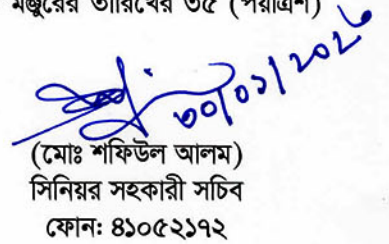 মঞ্জুরের তারিখের ৩৫ (পঁয়ত্রিশ)
৩০/০১/২০২৬
(মোঃ শফিউল আলম)
সিনিয়র সহকারী সচিব
ফোন: ৪১০৫২১৭২